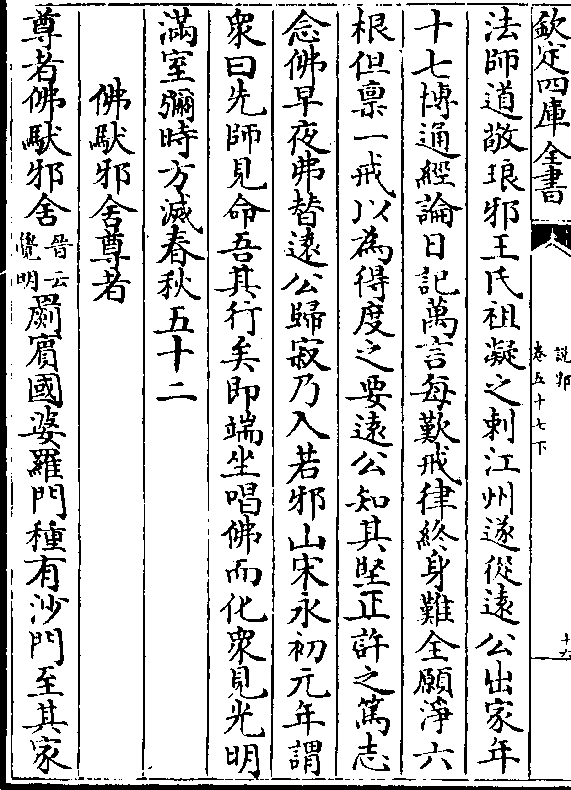 欽定四庫全書
說郛
卷五十七下
十六
法師道敬琅邪王氏祖凝之刺江州遂從遠公出家年
十七博通經論日記萬言每歎戒律終身難全願淨六
根但稟一戒以為得度之要遠公知其堅正許之篤志
念佛早夜弗替遠公歸寂乃入若邪山宋永初元年謂
衆曰先師見命吾其行矣即端坐唱佛而化衆見光明
滿室彌時方滅春秋五十二
佛馱邪舍尊者
尊者佛馱邪舍晉云覺明罽賓國婆羅門種有沙門至其家